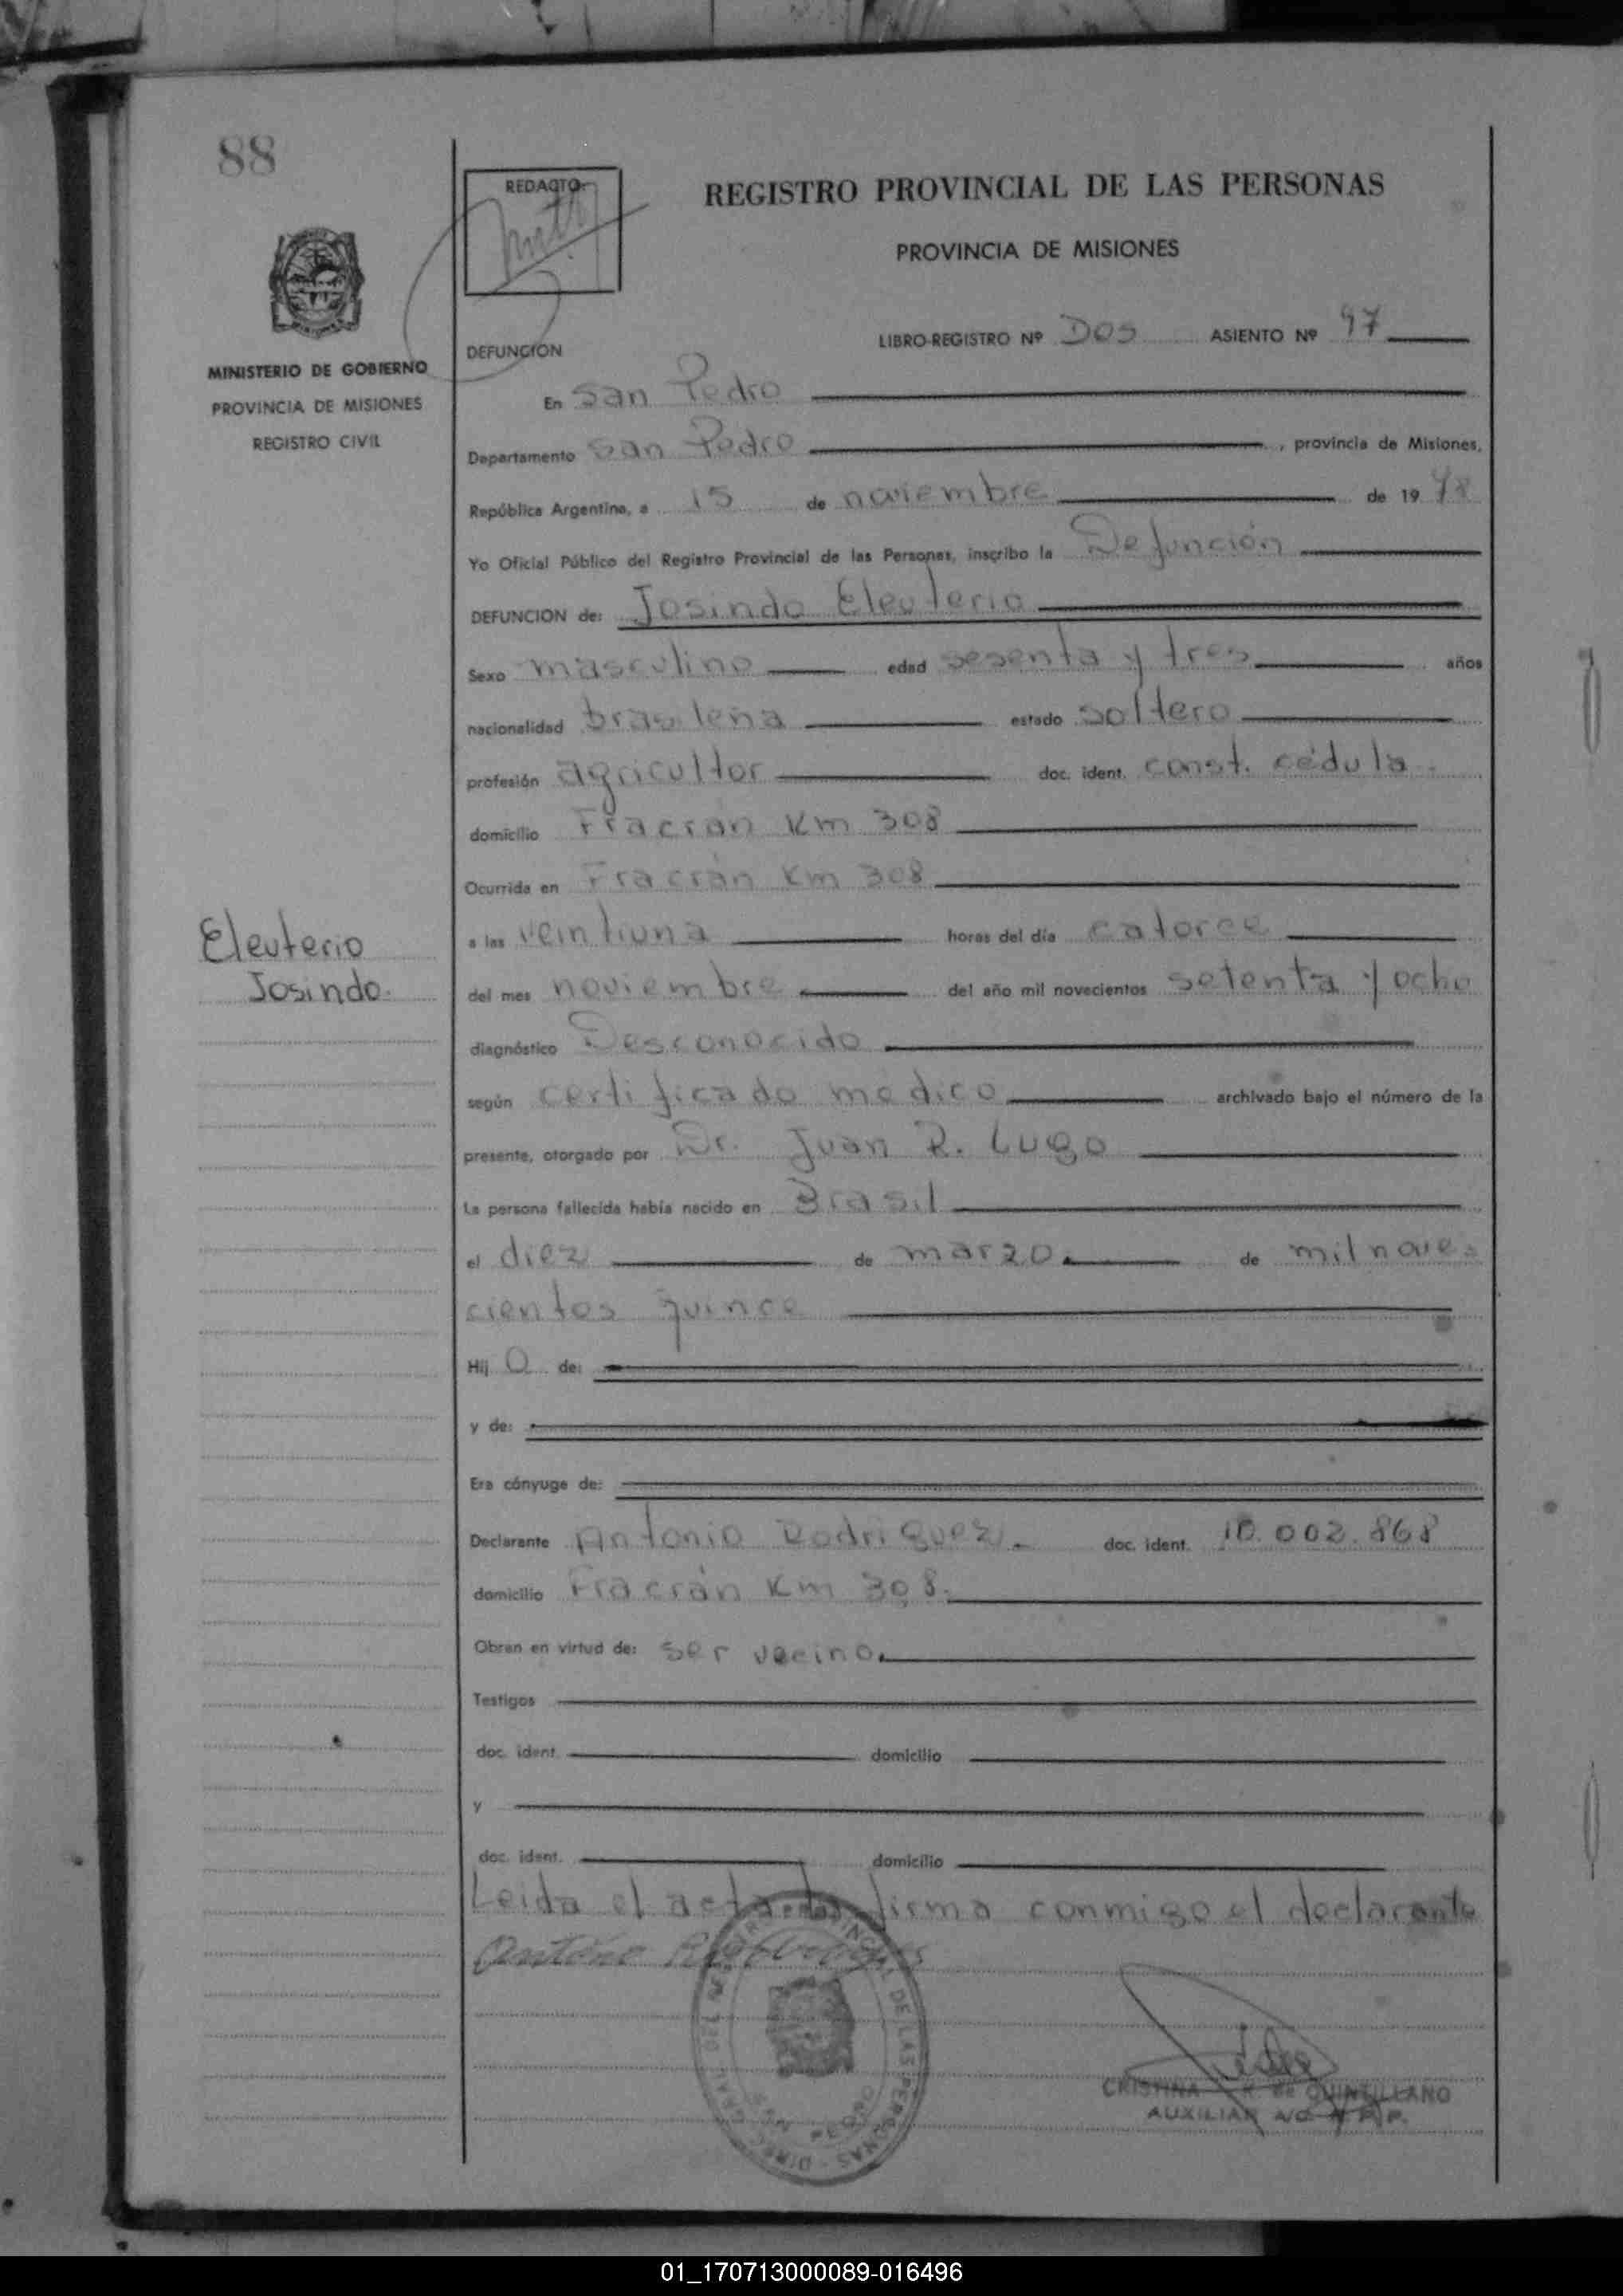 88
REDACTO:
REGISTRO PROVINCIAL DE LAS PERSONAS
PROVINCIA DE MISIONES
MINISTERIO DE GOBIERNO
PROVINCIA DE MISIONES
REGISTRO CIVIL
LIBRO-REGISTRO Nº Dos ASIENTO Nº 97
DEFUNCION
En San Pedro
Departamento San Pedro, provincia de Misiones,
República Argentina, a 15 de noviembre de 19 78
Yo Oficial Público del Registro Provincial de las Personas, inscribo la Defunción
DEFUNCION de: Josindo Eleuterio
Sexo masculino edad sesenta y tres años
nacionalidad brasileña estado soltero
profesión agricultor doc. ident. const. cédula
domicilio Fracrán Km 308
Ocurrida en Fracrán Km 308
Eleuterio
Josindo.
a las veintiuna horas del día catorce
del mes noviembre del año mil novecientos setenta y ocho
diagnóstico Desconocido
según certificado medico archivado bajo el número de la
presente, otorgado por Dr. Juan R. Lugo
La persona fallecida había nacido en Brasil
el diez de marzo. de mil nove
cientos quince
Hij o de:
y de:
Era cónyuge de:
Declarante Antonio Rodriguez. doc. ident. 10.002.868
domicilio Fracrán Km 308.
Obran en virtud de: ser vecino.
Testigos
doc. ident. domicilio
y
doc. ident. domicilio
Leida el acta firma conmigo el declarante
CRISTINA de QUINTILLANO
AUXILIAR A/C R.P.P.
SAN PEDRO
01_170713000089-016496